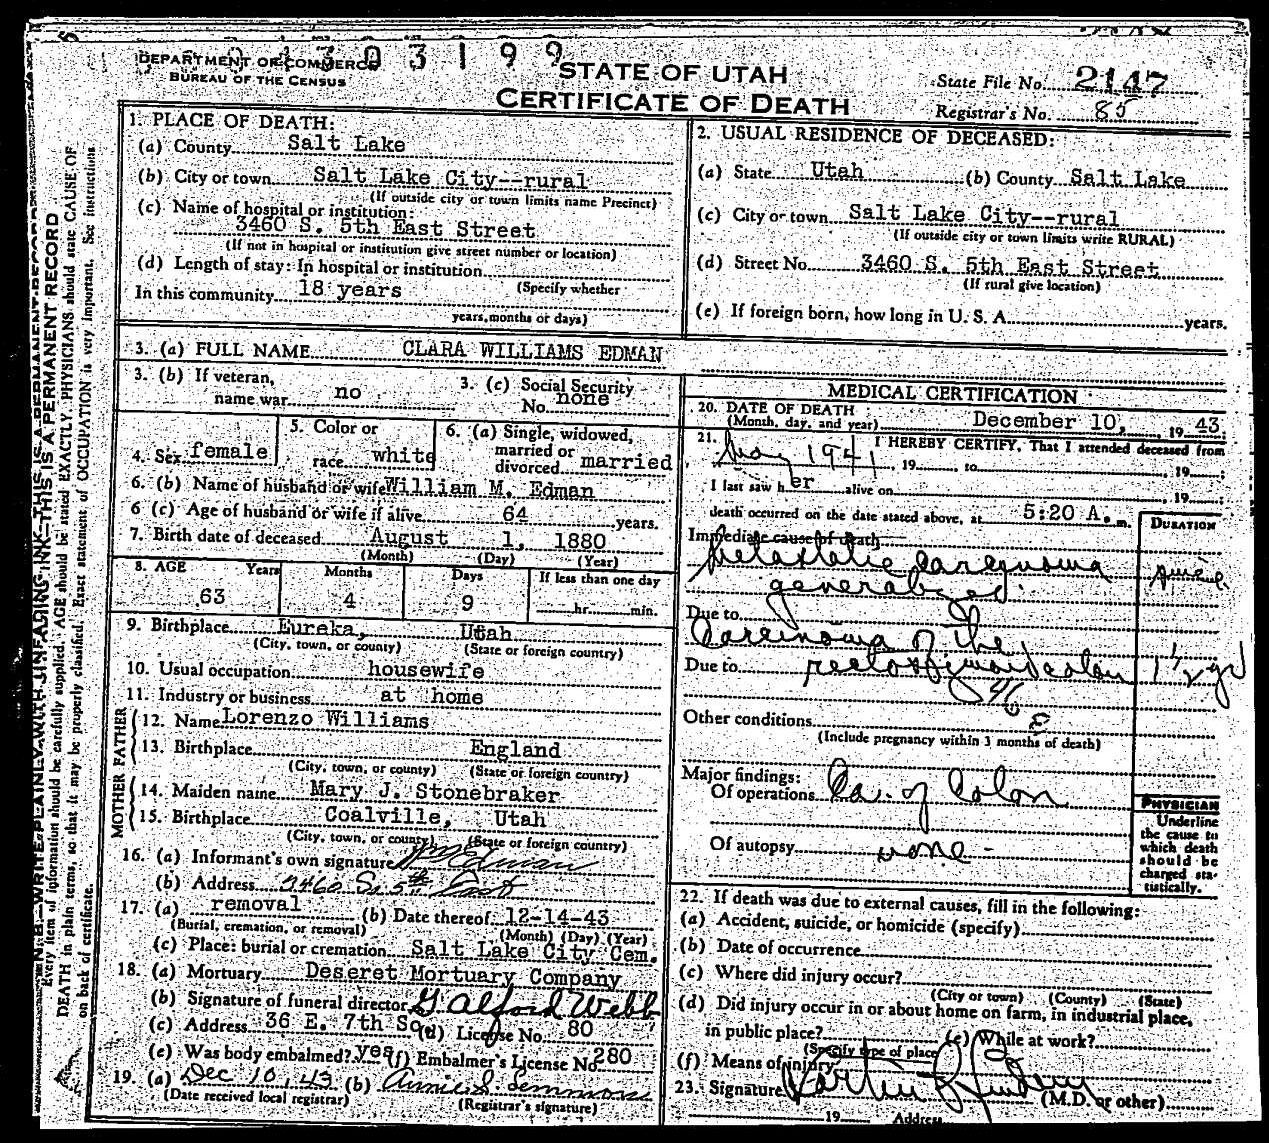 04303199
DEPARTMENT OF COMMERCE
BUREAU OF THE CENSUS
STATE OF UTAH
CERTIFICATE OF DEATH
State File No. 2147
Registrar's No. 85
1. PLACE OF DEATH:
(a) County Salt Lake
(b) City or town Salt Lake City--rural
(If outside city or town limits name Precinct)
(c) Name of hospital or institution:
3460 S. 5th East Street
(If not in hospital or institution give street number or location)
(d) Length of stay: In hospital or institution
(Specify whether
In this community 18 years
years, months or days)
2. USUAL RESIDENCE OF DECEASED:
(a) State Utah (b) County Salt Lake
(c) City or town Salt Lake City--rural
(If outside city or town limits write RURAL)
(d) Street No. 3460 S. 5th East Street
(If rural give location)
(e) If foreign born, how long in U. S. A. years.
3. (a) FULL NAME CLARA WILLIAMS EDMAN
3. (b) If veteran, name war no
3. (c) Social Security No. none
4. Sex female
5. Color or race white
6. (a) Single, widowed, married or divorced married
6. (b) Name of husband or wife William M. Edman
6 (c) Age of husband or wife if alive 64 years.
7. Birth date of deceased August 1, 1880
(Month) (Day) (Year)
8. AGE Years Months Days If less than one day
63 4 9 hr. min.
9. Birthplace Eureka, Utah
(City, town, or county) (State or foreign country)
10. Usual occupation housewife
11. Industry or business at home
FATHER
12. Name Lorenzo Williams
13. Birthplace England
(City, town, or county) (State or foreign country)
MOTHER
14. Maiden name Mary J. Stonebraker
15. Birthplace Coalville, Utah
(City, town, or county) (State or foreign country)
16. (a) Informant's own signature Wm Edman
(b) Address 3460 So 5th East
17. (a) removal (b) Date thereof 12-14-43
(Burial, cremation, or removal) (Month) (Day) (Year)
(c) Place: burial or cremation Salt Lake City Cem.
18. (a) Mortuary Deseret Mortuary Company
(b) Signature of funeral director G. Alford Webb
(c) Address 36 E. 7th So. (d) License No. 80
(e) Was body embalmed? yes (f) Embalmer's License No. 280
19. (a) Dec 10, 43 (b) Annie S. Lemmon
(Date received local registrar) (Registrar's signature)
MEDICAL CERTIFICATION
20. DATE OF DEATH
(Month, day, and year) December 10, 19 43.
21. I HEREBY CERTIFY, That I attended deceased from
1941, 19 to 19 ;
I last saw h er alive on , 19 ;
death occurred on the date stated above, at 5:20 A. m.
DURATION
Immediate cause of death
Metastatic Carcinoma
generalized
Due to
Carcinoma of the
Due to rectosigmoid colon 1 1/2 yr
46
E
Other conditions
(Include pregnancy within 3 months of death)
Major findings:
Of operations Ca. of Colon
Of autopsy none -
PHYSICIAN
Underline
the cause to
which death
should be
charged sta-
tistically.
22. If death was due to external causes, fill in the following:
(a) Accident, suicide, or homicide (specify)
(b) Date of occurrence
(c) Where did injury occur?
(City or town) (County) (State)
(d) Did injury occur in or about home on farm, in industrial place,
in public place? (e) While at work?
(Specify type of place)
(f) Means of injury
23. Signature (M.D. or other)
19 Address
N. B.—WRITE PLAINLY WITH UNFADING INK—THIS IS A PERMANENT RECORD
Every item of information should be carefully supplied. AGE should be stated EXACTLY. PHYSICIANS should state CAUSE OF
DEATH in plain terms, so that it may be properly classified. Exact statement of OCCUPATION is very important. See instructions
on back of certificate.